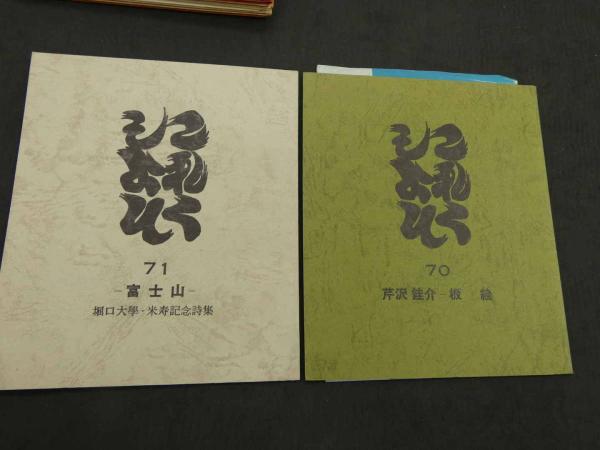 これく
しょん
71
-富士山-
堀口大學・米寿記念詩集
これく
しょん
70
芹沢銈介-板 絵